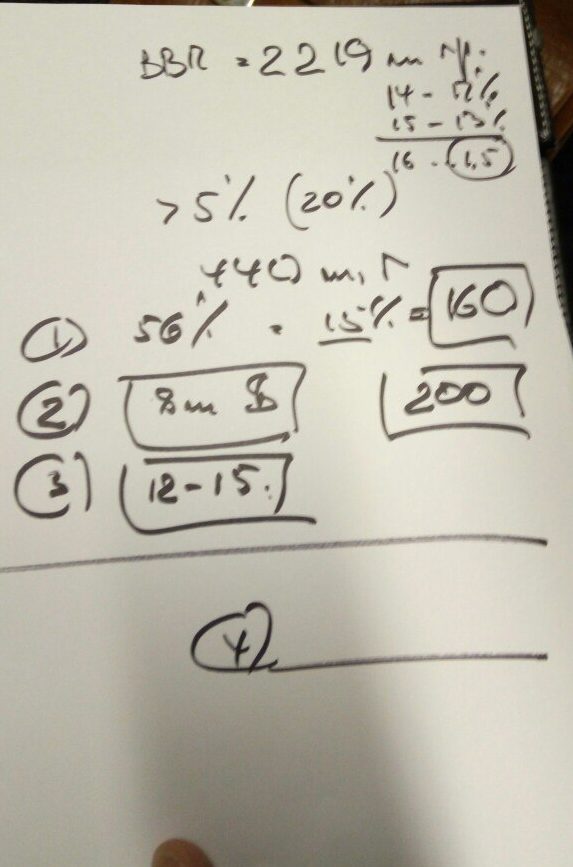 ВВП = 2219 m
14 - 12%
15 - 13%
16 - 1,5
> 5% (20%)
440 m.
① 56% · 15% = 160
② 8m $ 200
③ 12-15.
④